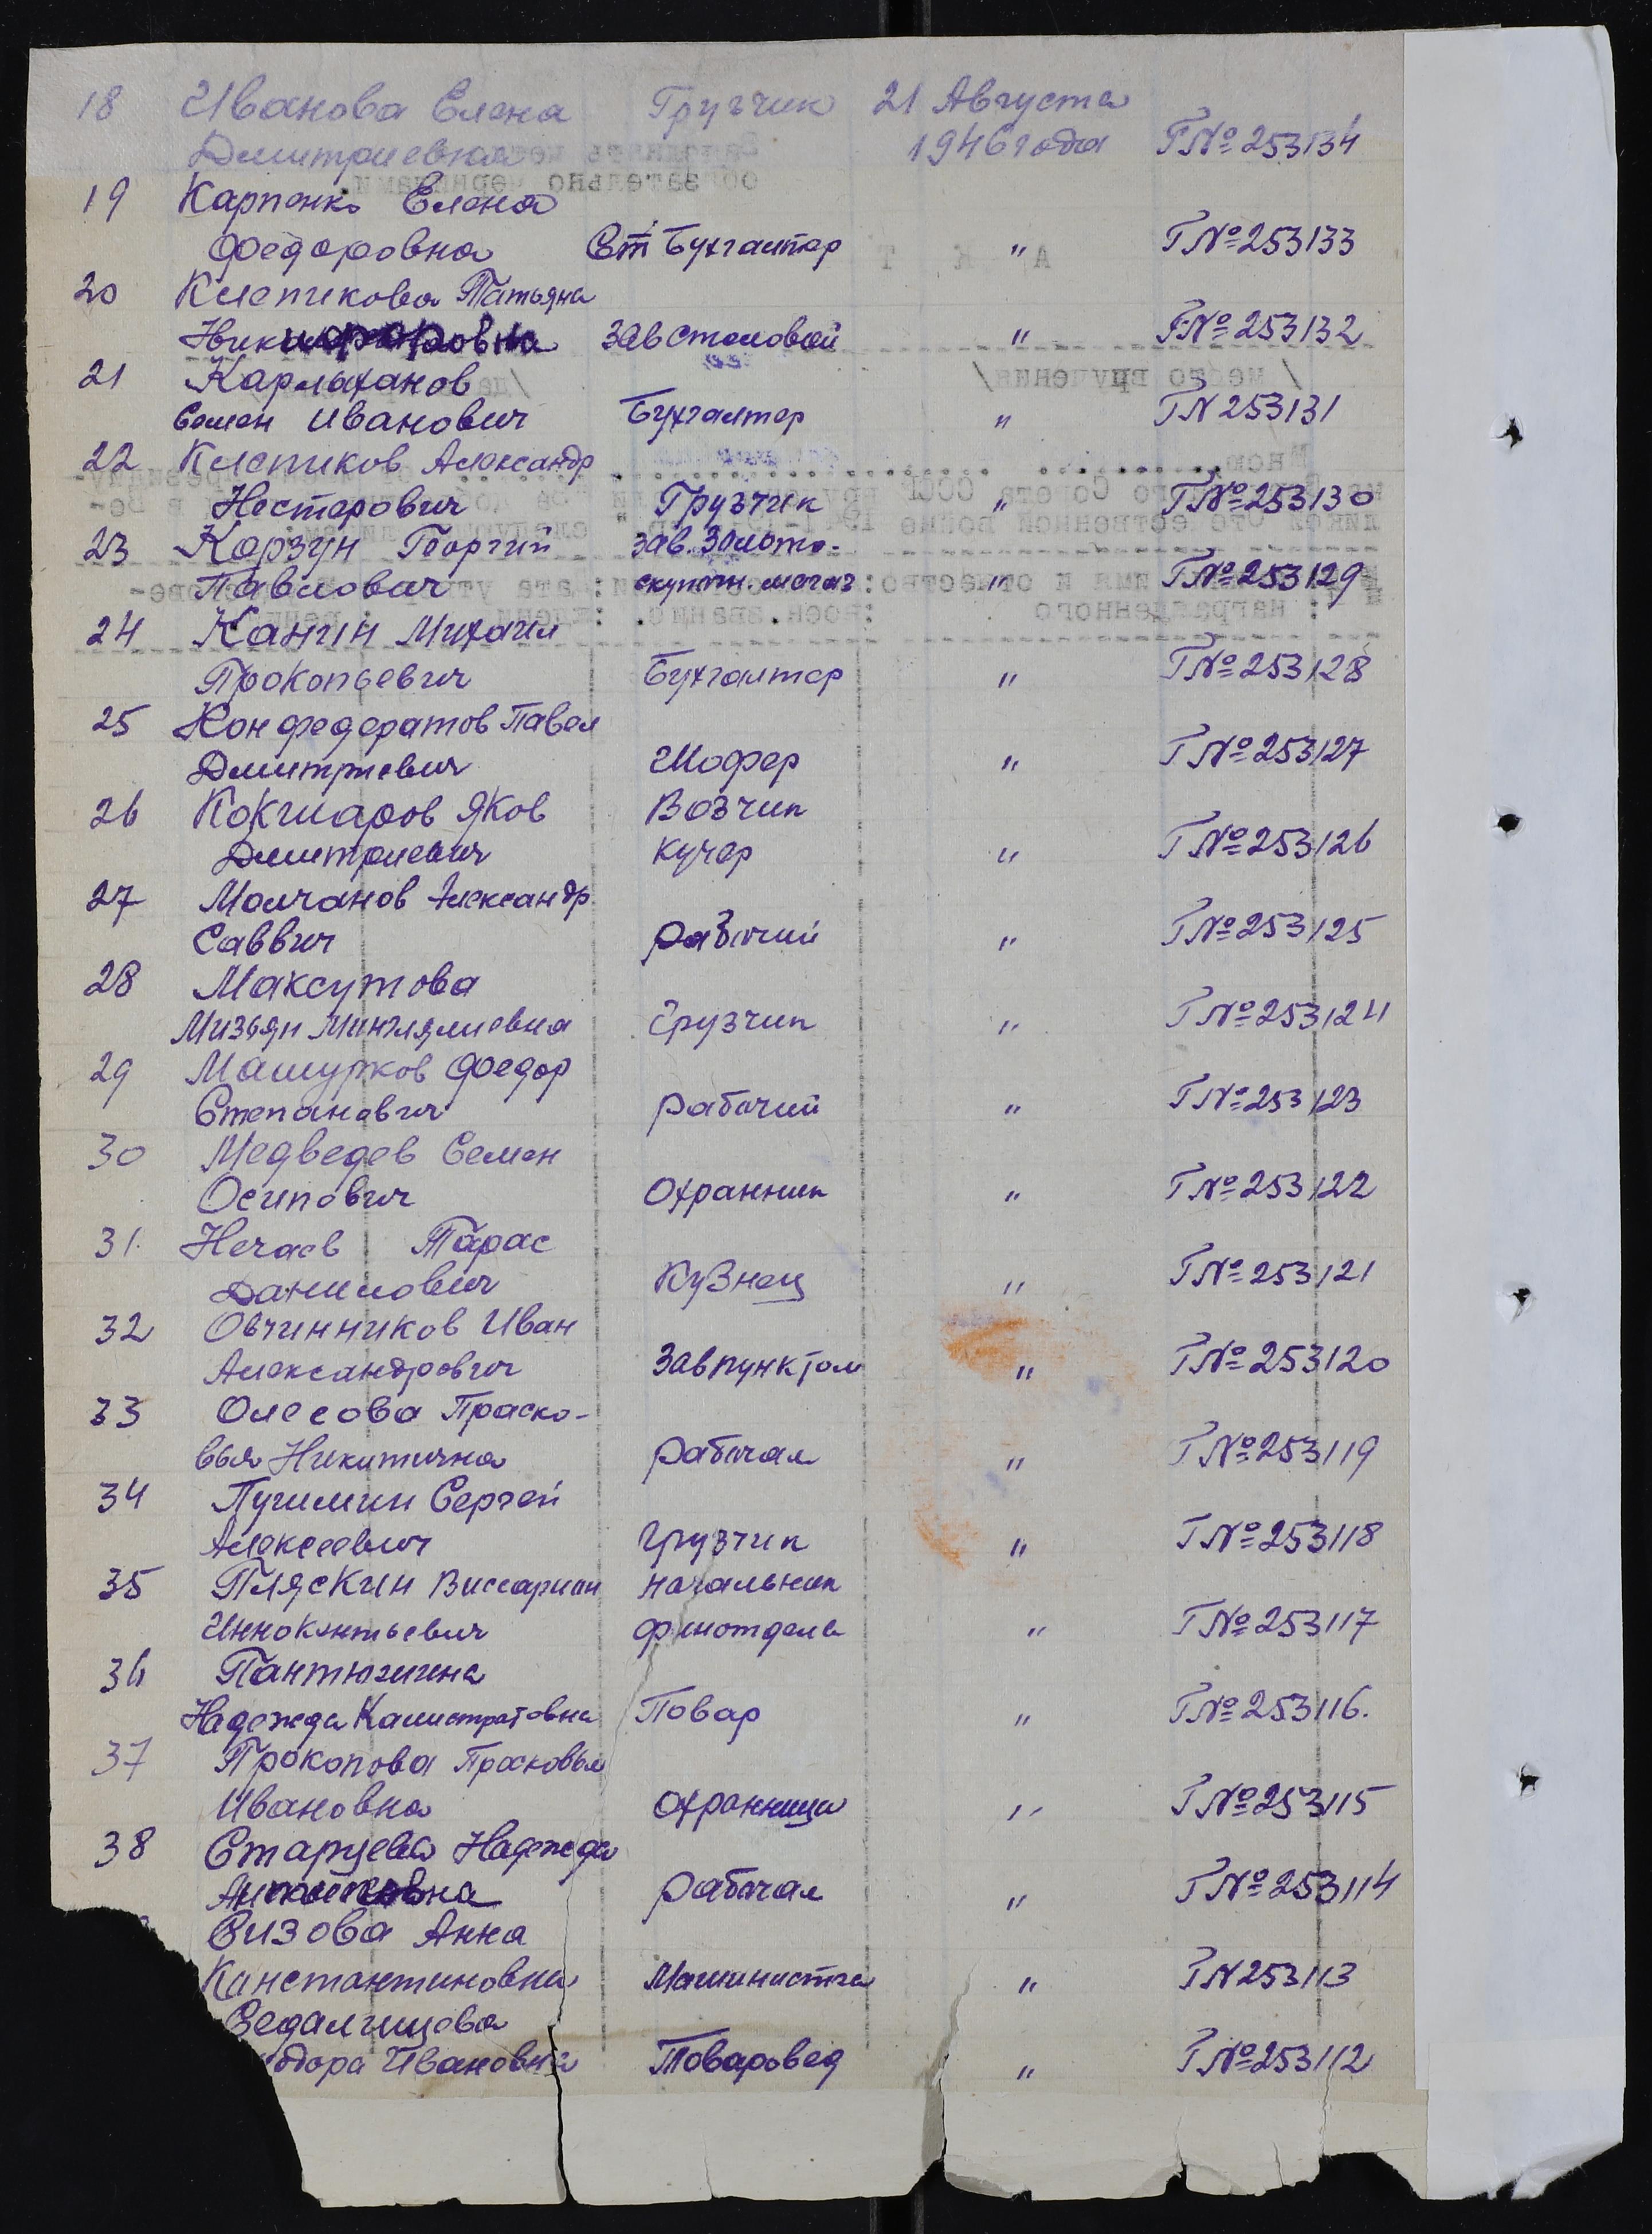 18 Иванова Елена Грузчик 21 Августа
Дмитриевна 1946 года Г№253134
19 Карпенко Елена
Федоровна Ст Бухгалтер " Г№253133
20 Клепикова Татьяна
завстоловой " Г№253132
21 Карлаханов
Семен Иванович Бухгалтер " ГN 253131
22 Клепиков Александр
Нестерович Грузчик " Г№253130
23 Корзун Георгий зав. Золото-
Павлович скупочн. магаз " Г№253129
24 Канин Михаил
Прокопьевич Бухгалтер " Г№253128
25 Конфедератов Павел
Дмитриевич Шофер " Г№253127
26 Кокшаров Яков Возчик
Дмитриевич кучер " Г№253126
27 Молчанов Александр
Саввич рабочий " Г№253125
28 Максутова
Мизьян Минглялиевна Грузчик " Г№253124
29 Машурков Федор
Степанович рабочий " Г№253123
30 Медведев Семен
Осипович Охранник " Г№253122
31. Нечаев Тарас
Данилович Кузнец " Г№253121
32 Овчинников Иван
Александрович Завпунктом " Г№253120
33 Олесова Праско-
вья Никитична рабочая " Г№253119
34 Пушмин Сергей
Алексеевич Грузчик " Г№253118
35 Пляскин Виссарион начальник
Иннокентьевич финотдела " Г№253117
36 Пантюхина
Надежда Калистратовна Повар " Г№253116.
37 Прокопова Прасковья
Ивановна охранница " Г№253115
38 Старцева Надежда
рабочая " Г№253114
Сизова Анна
Константиновна Машинистка " ГN253113
Седалищева
одора Ивановна Товаровед " Г№253112